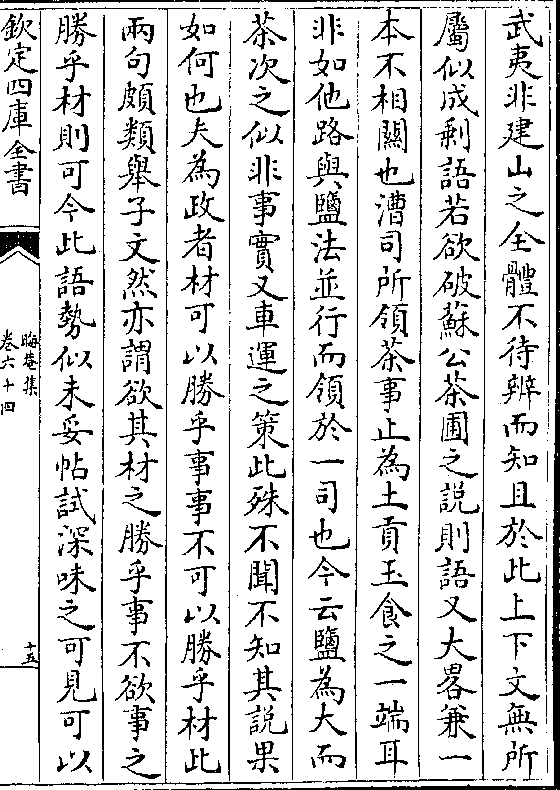 武夷非建山之全體不待辨而知且於此上下文無所
屬似成剩語若欲破蘇公茶圃之説則語又大畧兼一
本不相關也漕司所領茶事止為土貢玉食之一端耳
非如他路與鹽法並行而領於一司也今云鹽為大而
茶次之似非事實又車運之策此殊不聞不知其説果
如何也夫為政者材可以勝乎事事不可以勝乎材此
兩句頗類舉子文然亦謂欲其材之勝乎事不欲事之
勝乎材則可今此語勢似未妥帖試深味之可見可以
欽定四庫全書
晦菴集
卷六十四
十五